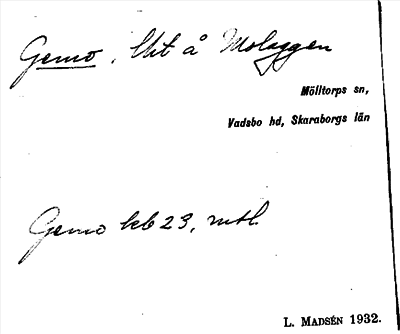 Gemo, Ut å Molaggen
Mölltorps sn,
Vadsbo hd, Skaraborgs län
Gemo kb 23, mtl.
L. MADSÉN 1932.